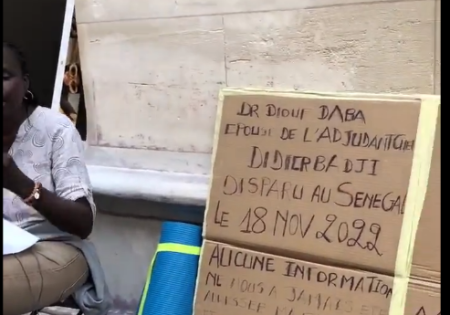 DR DIOUF DABA
EPOUSE DE L'ADJUDANT CHEF
DIDIER BADJI
DISPARU AU SENEGAL
LE 18 NOV 2022
AUCUNE INFORMATION
NE NOUS A JAMAIS ETE